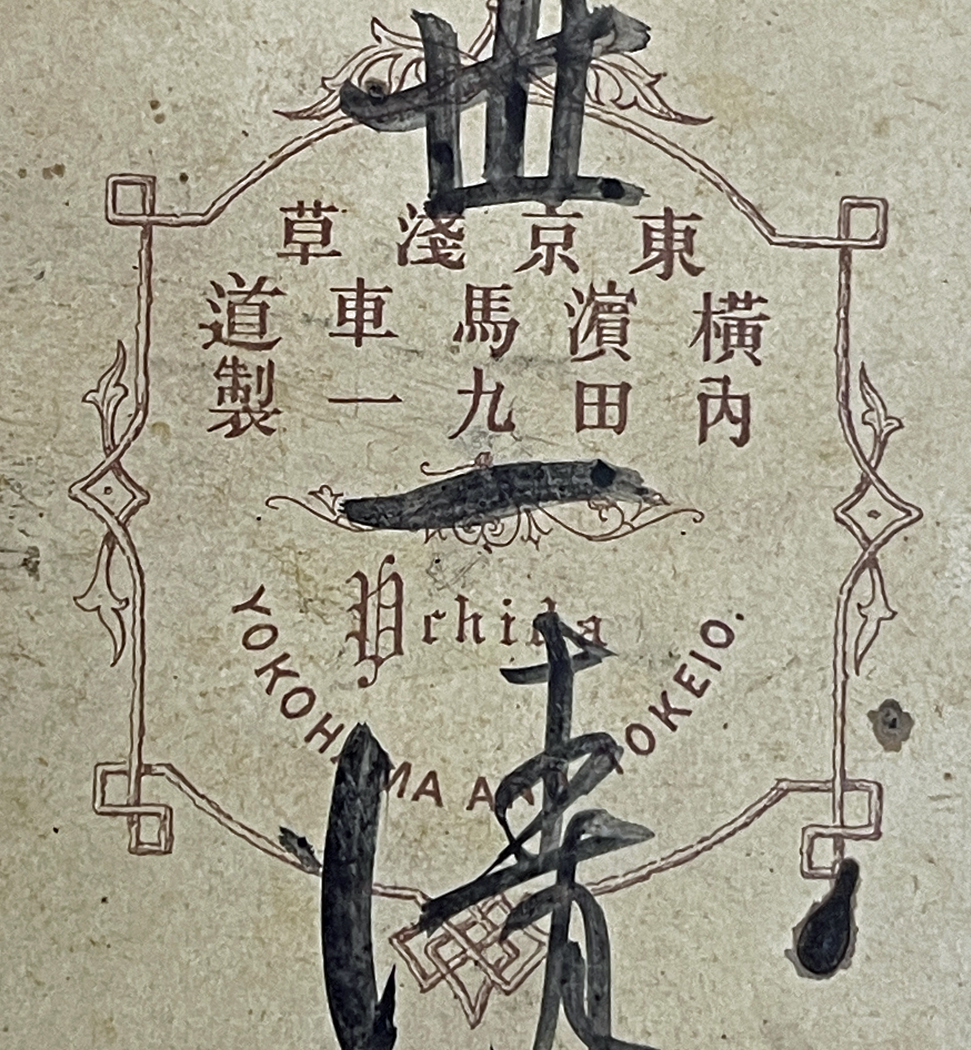 東京淺草
橫濵馬車道
内田九一製
Uchida
YOKOHAMA AND TOKEIO.